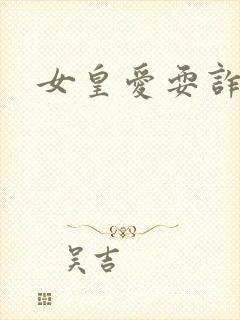 女皇愛耍詐
吴吉